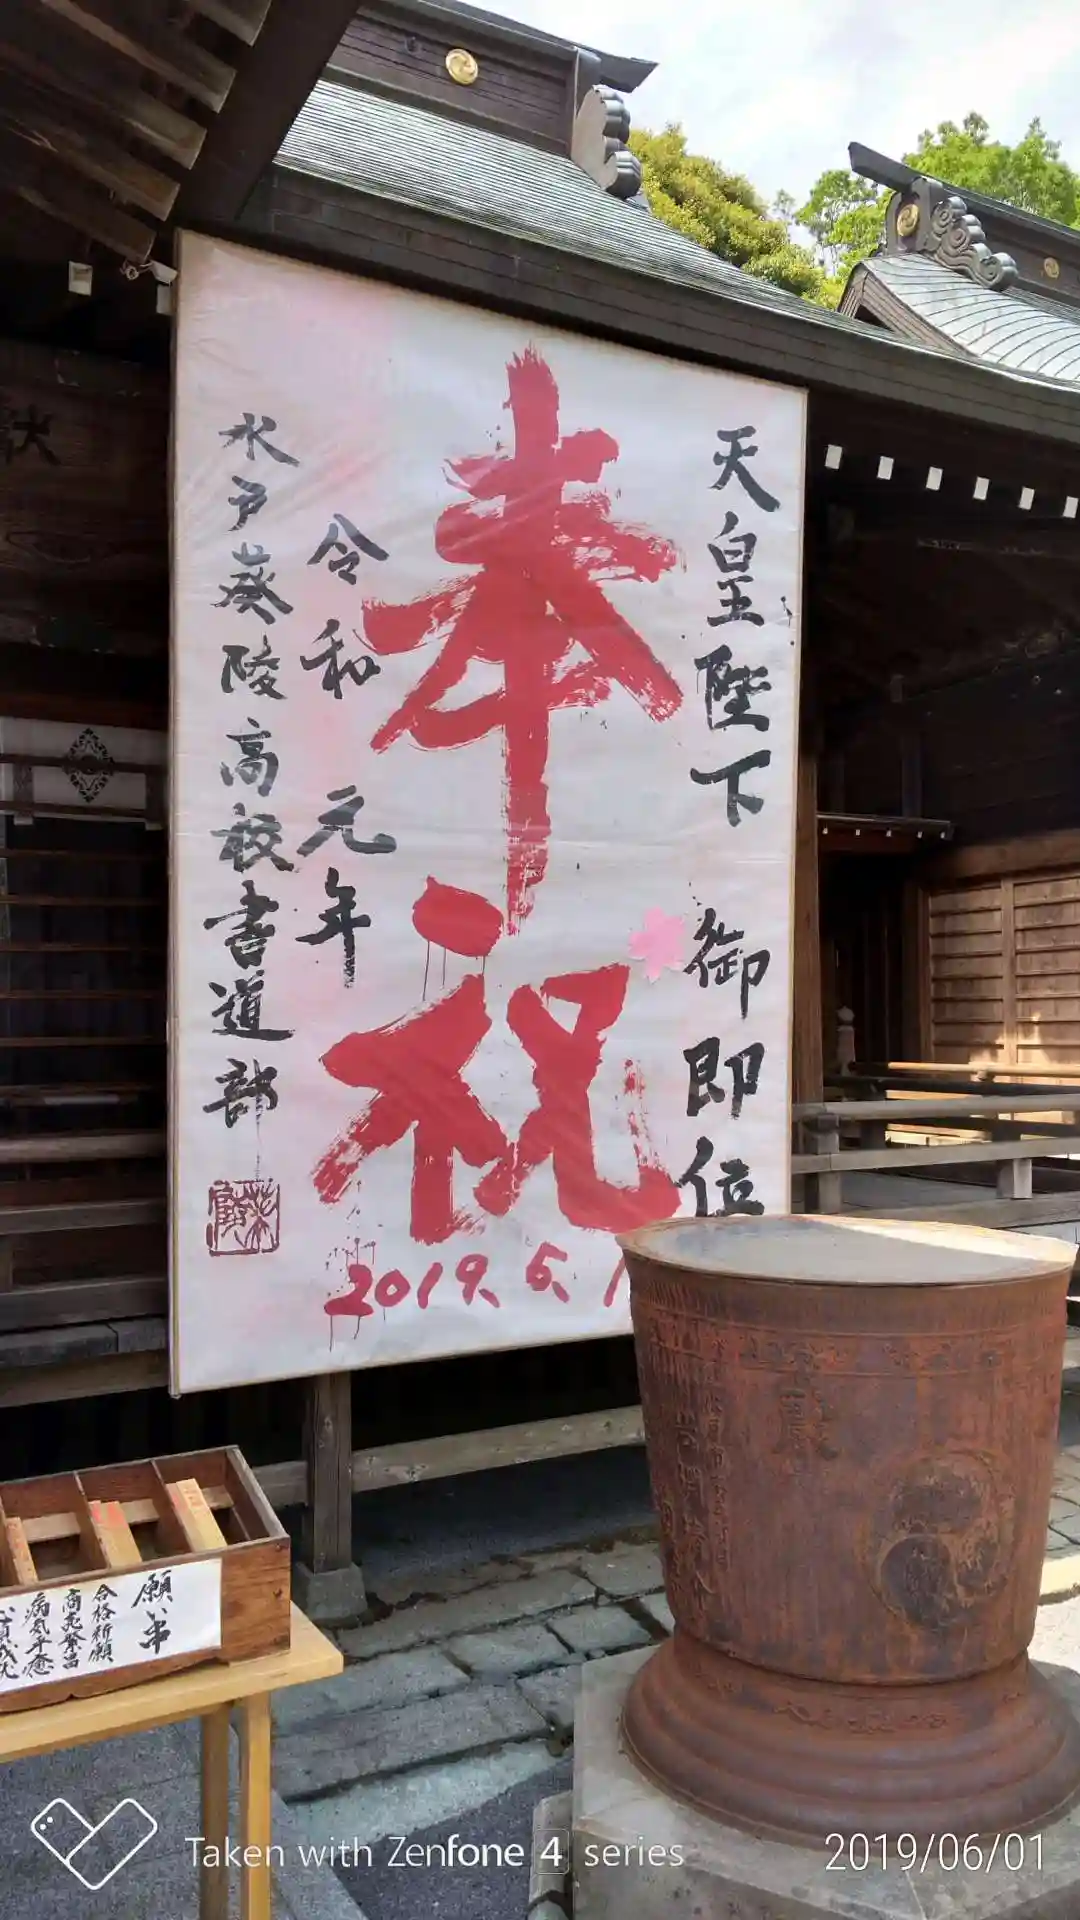 天皇陛下 御即位
奉祝
2019.5.1
令和 元年
水戸葵陵高校書道部
献
願い串
合格祈願
商売繁昌
病気平癒
Taken with Zenfone 4 series
2019/06/01